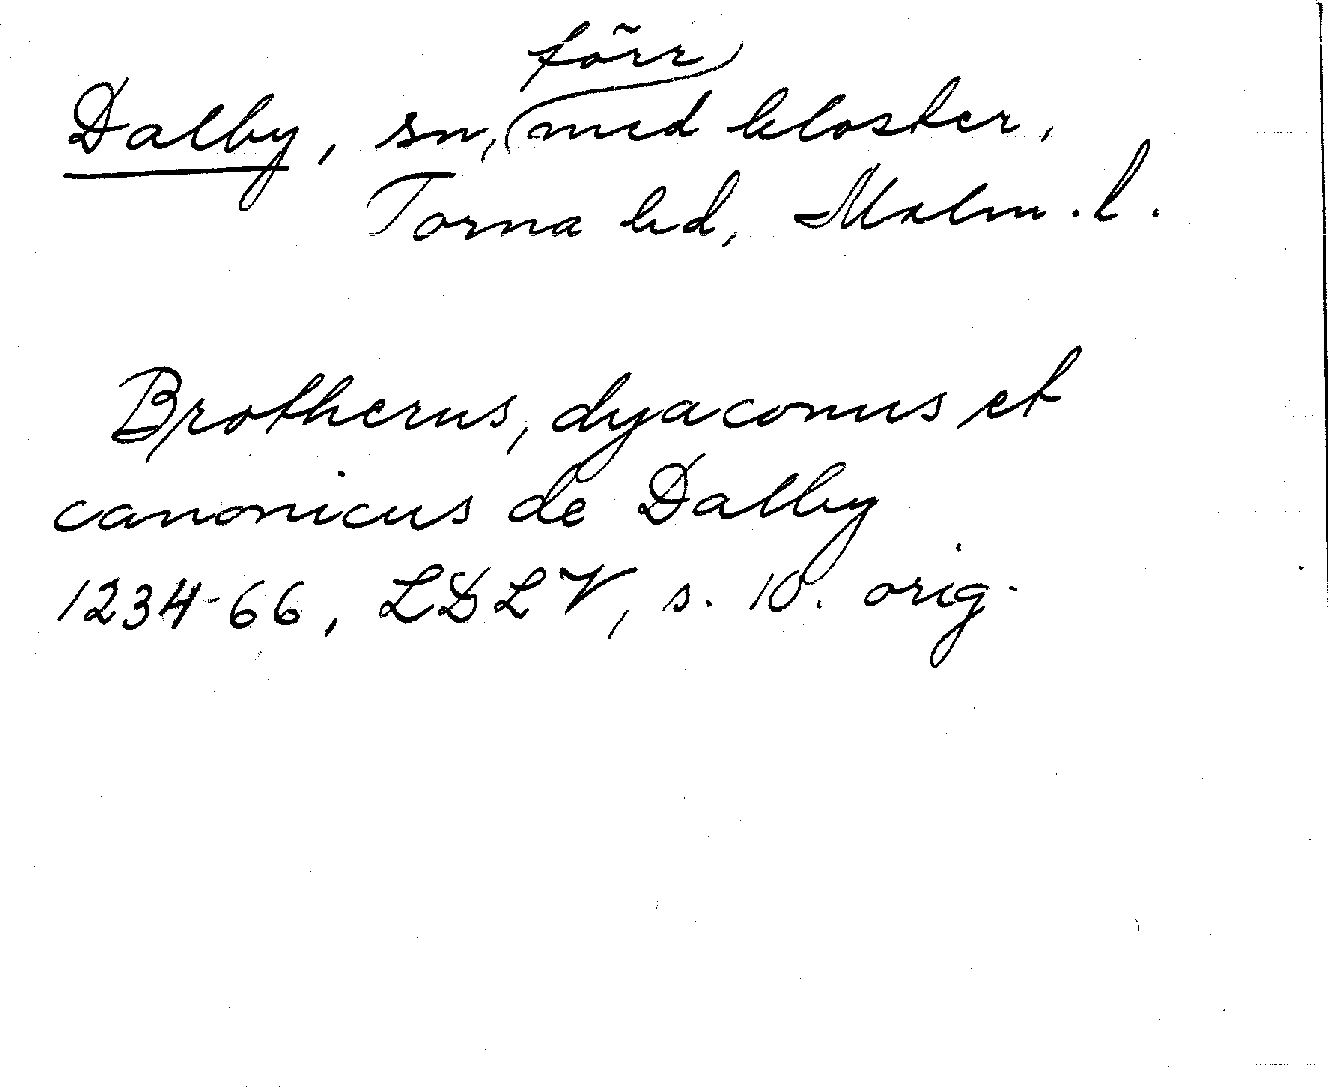 förr
Dalby, sn, med kloster,
Torna hd, Malm. l.
Brotherus, dyaconus et
canonicus de Dalby
1234-66, LDLV, s. 10. orig.